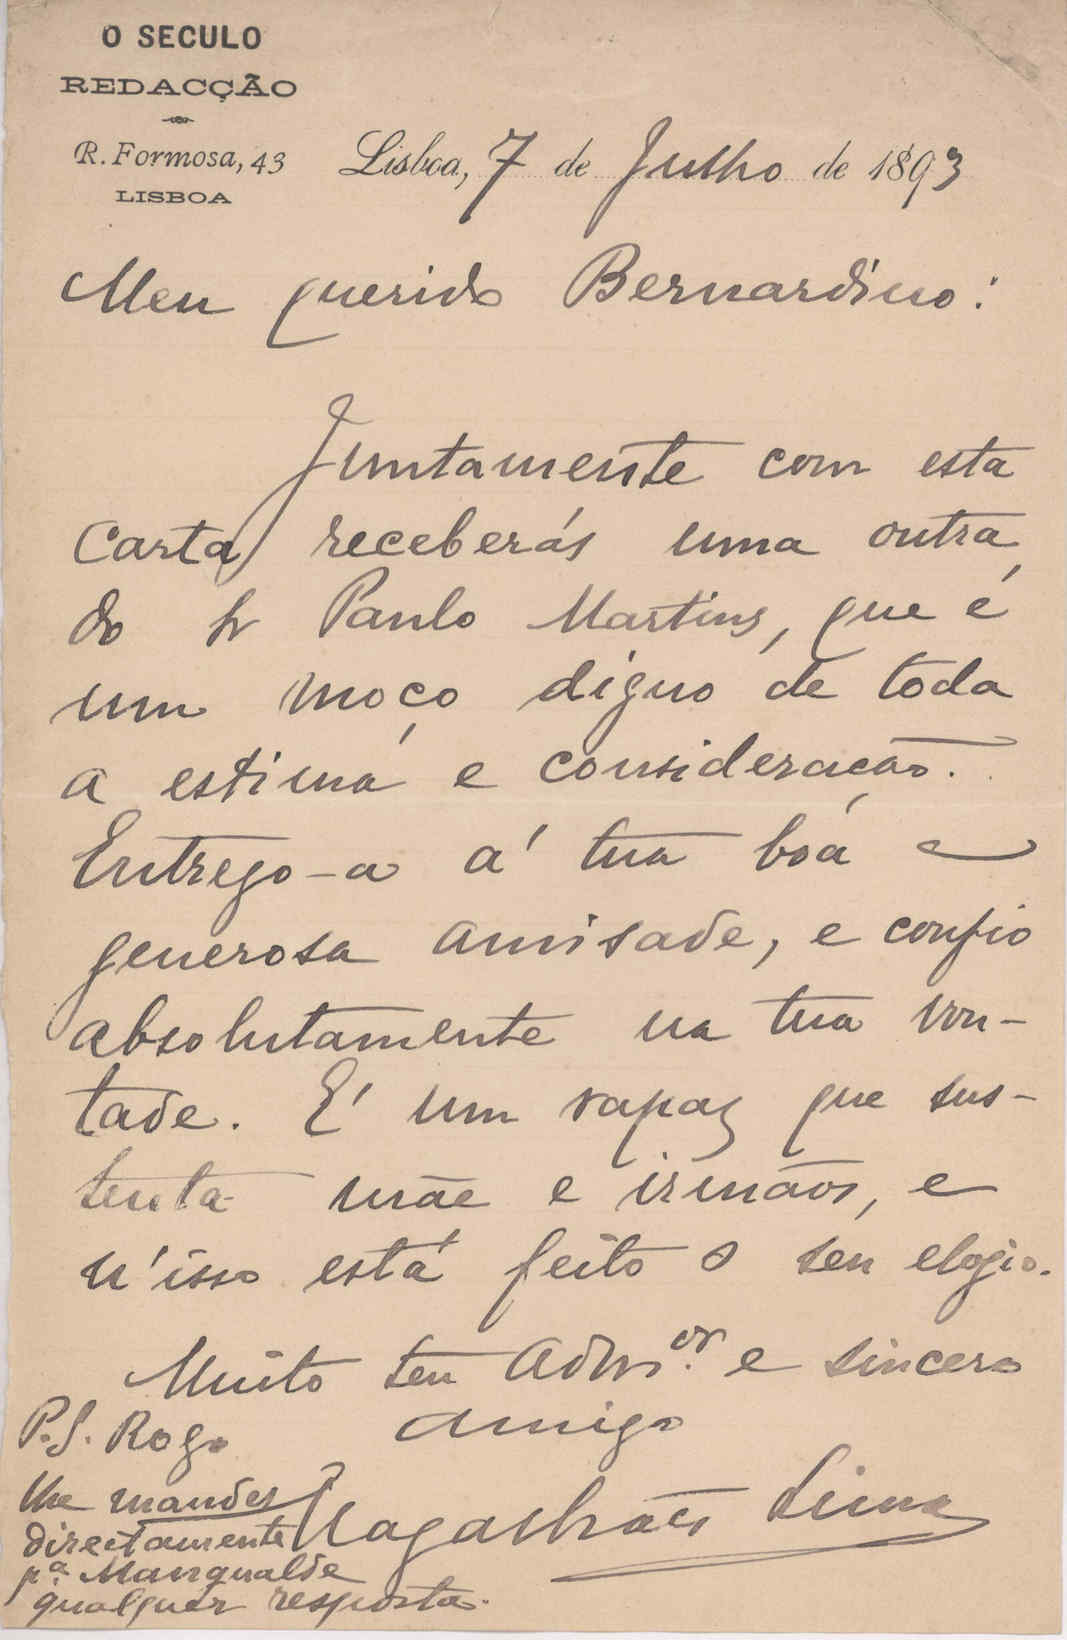 O SECULO
REDACÇÃO
R. Formosa, 43
LISBOA
Lisboa, 7 de Julho de 1893
Meu querido Bernardino:
Juntamente com esta
carta receberás uma outra
do Sr Paulo Martins, que é
um moço digno de toda
a estima e consideração.
Entrego-a á tua boa e
generosa amisade, e confio
absolutamente na tua von-
tade. É um rapaz que sus-
tenta mãe e irmãos, e
n'isso está feito o seu elogio.
Muito teu admor. e sincero
amigo
Magalhães Lima
P.S. Rogo
lhe mandes
directamente
pa. Mangualde
qualquer resposta.